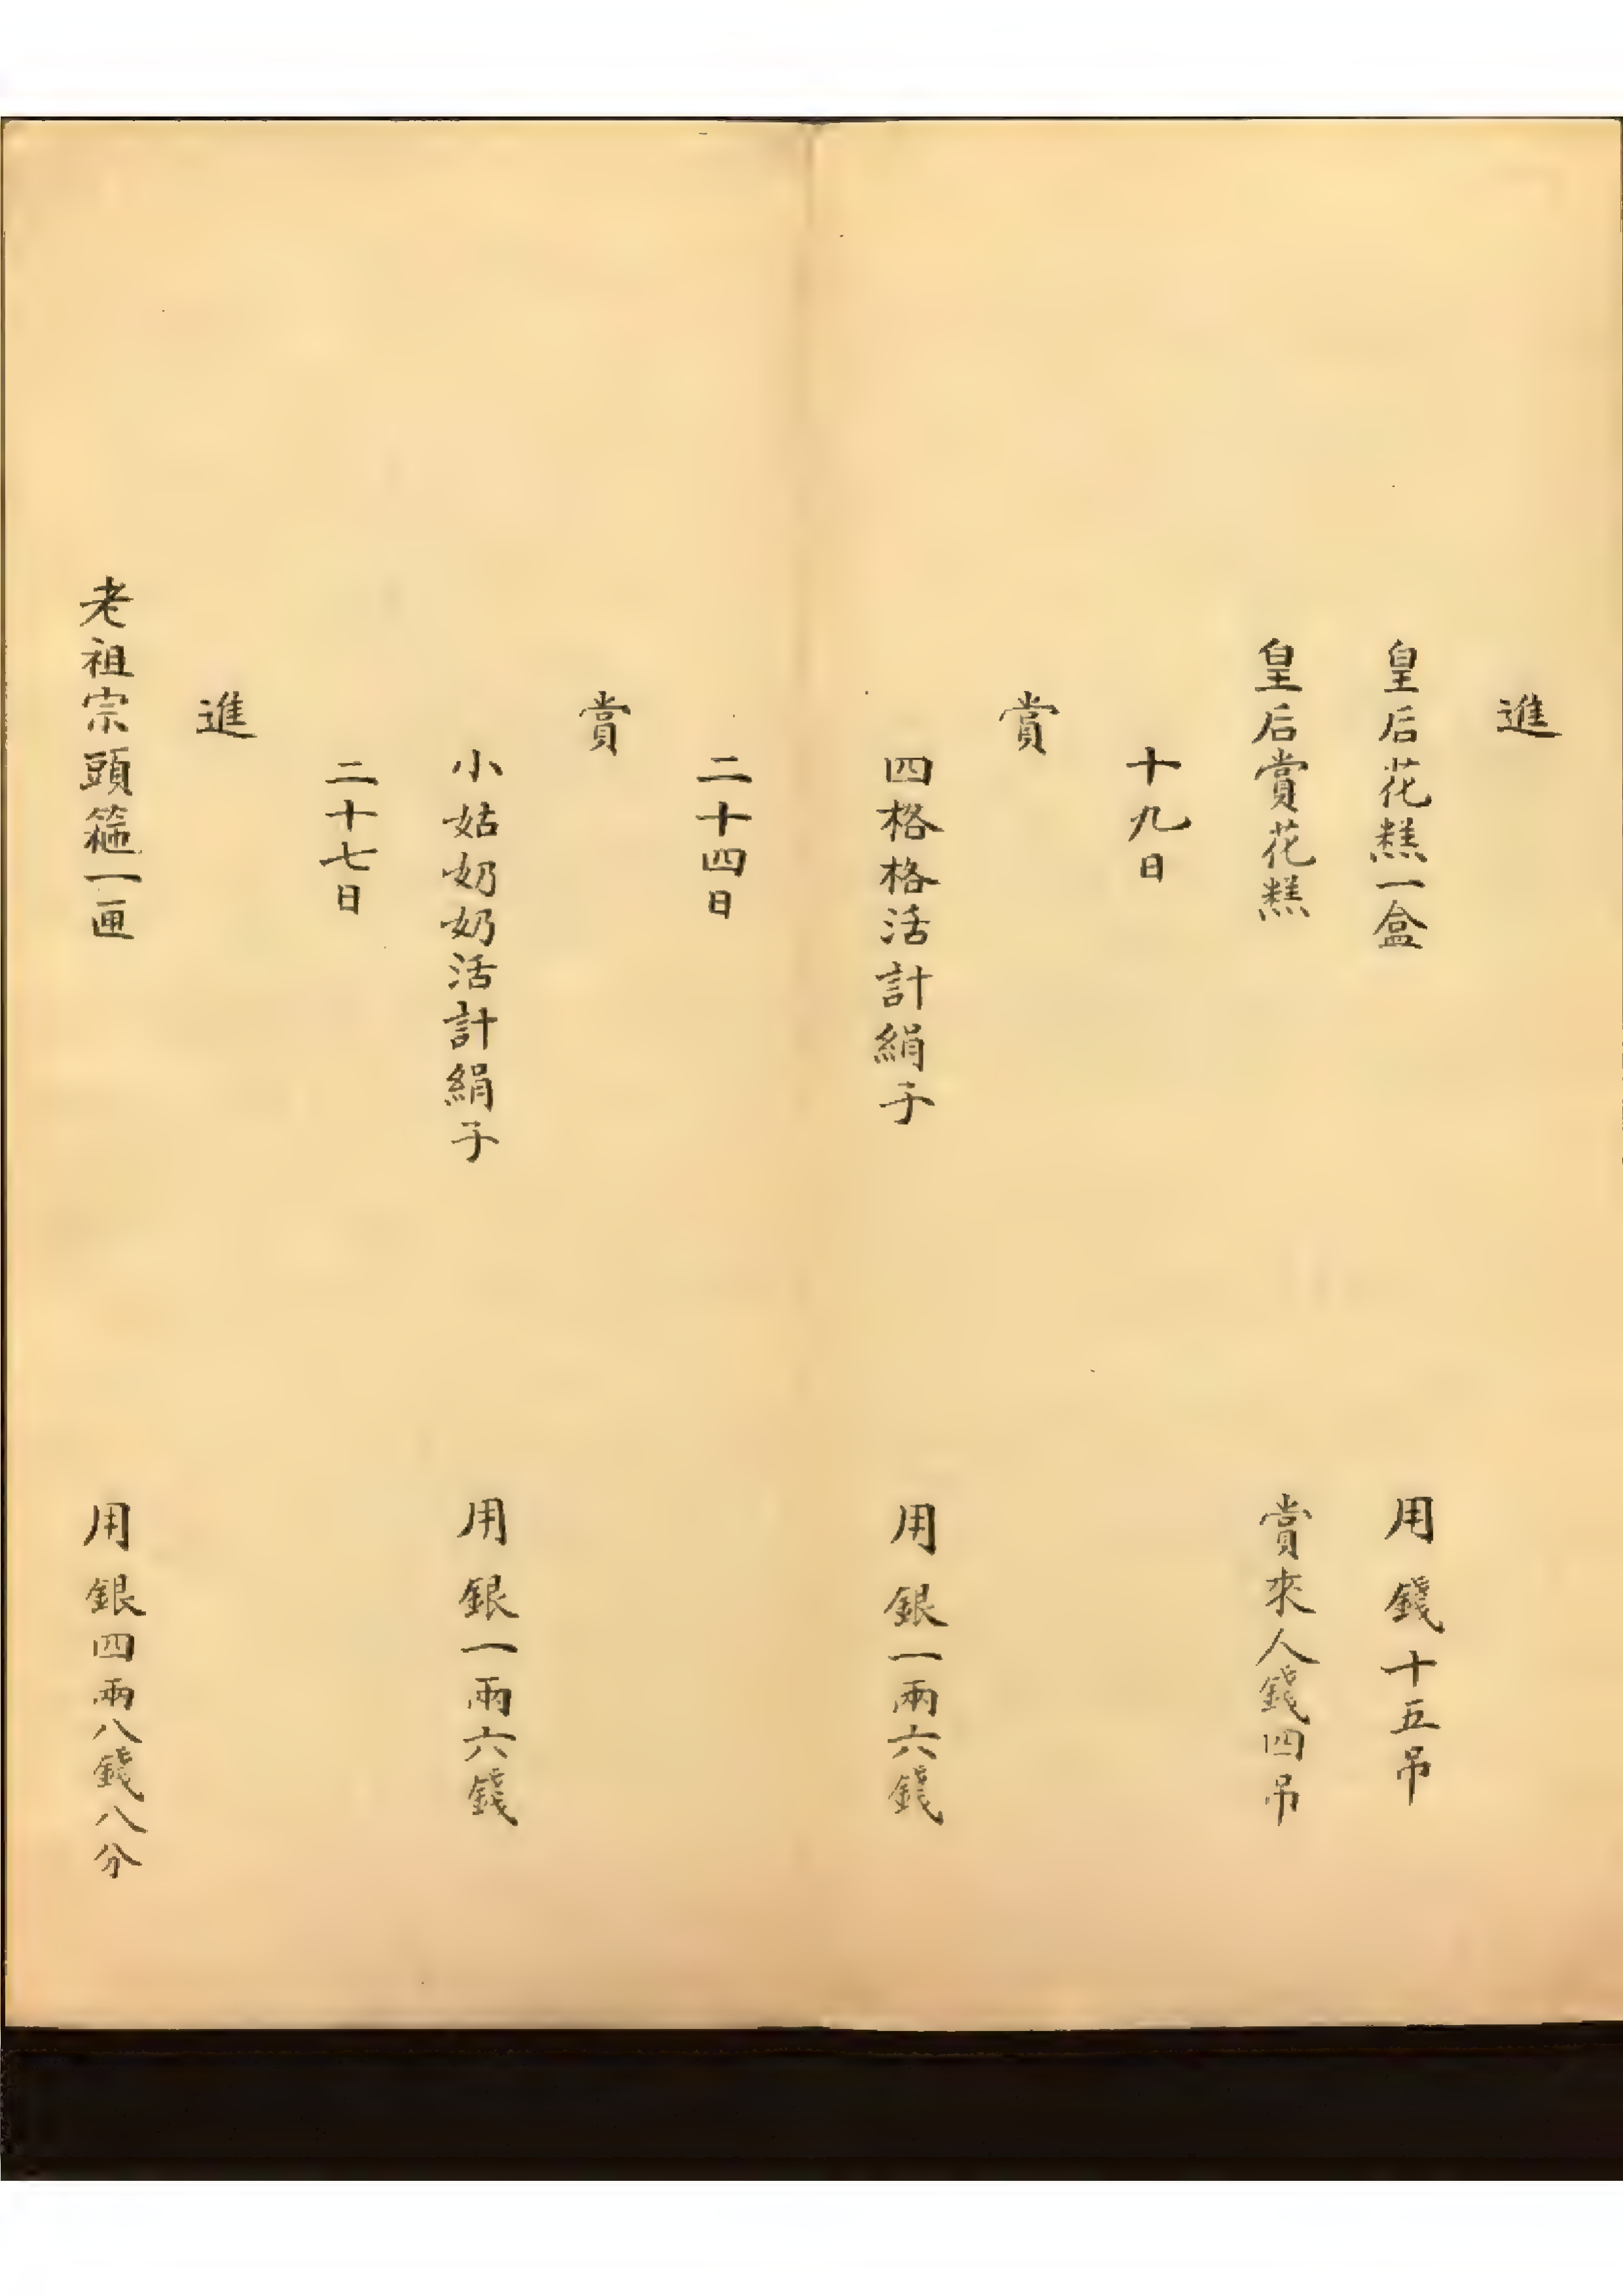 進
皇后花糕一盒 用錢十五吊
皇后賞花糕 賞來人錢四吊
十九日
賞
四格格活計絹子 用銀一兩六錢
二十四日
賞
小姑奶奶活計絹子 用銀一兩六錢
二十七日
進
老祖宗頭箍一匣 用銀四兩八錢八分